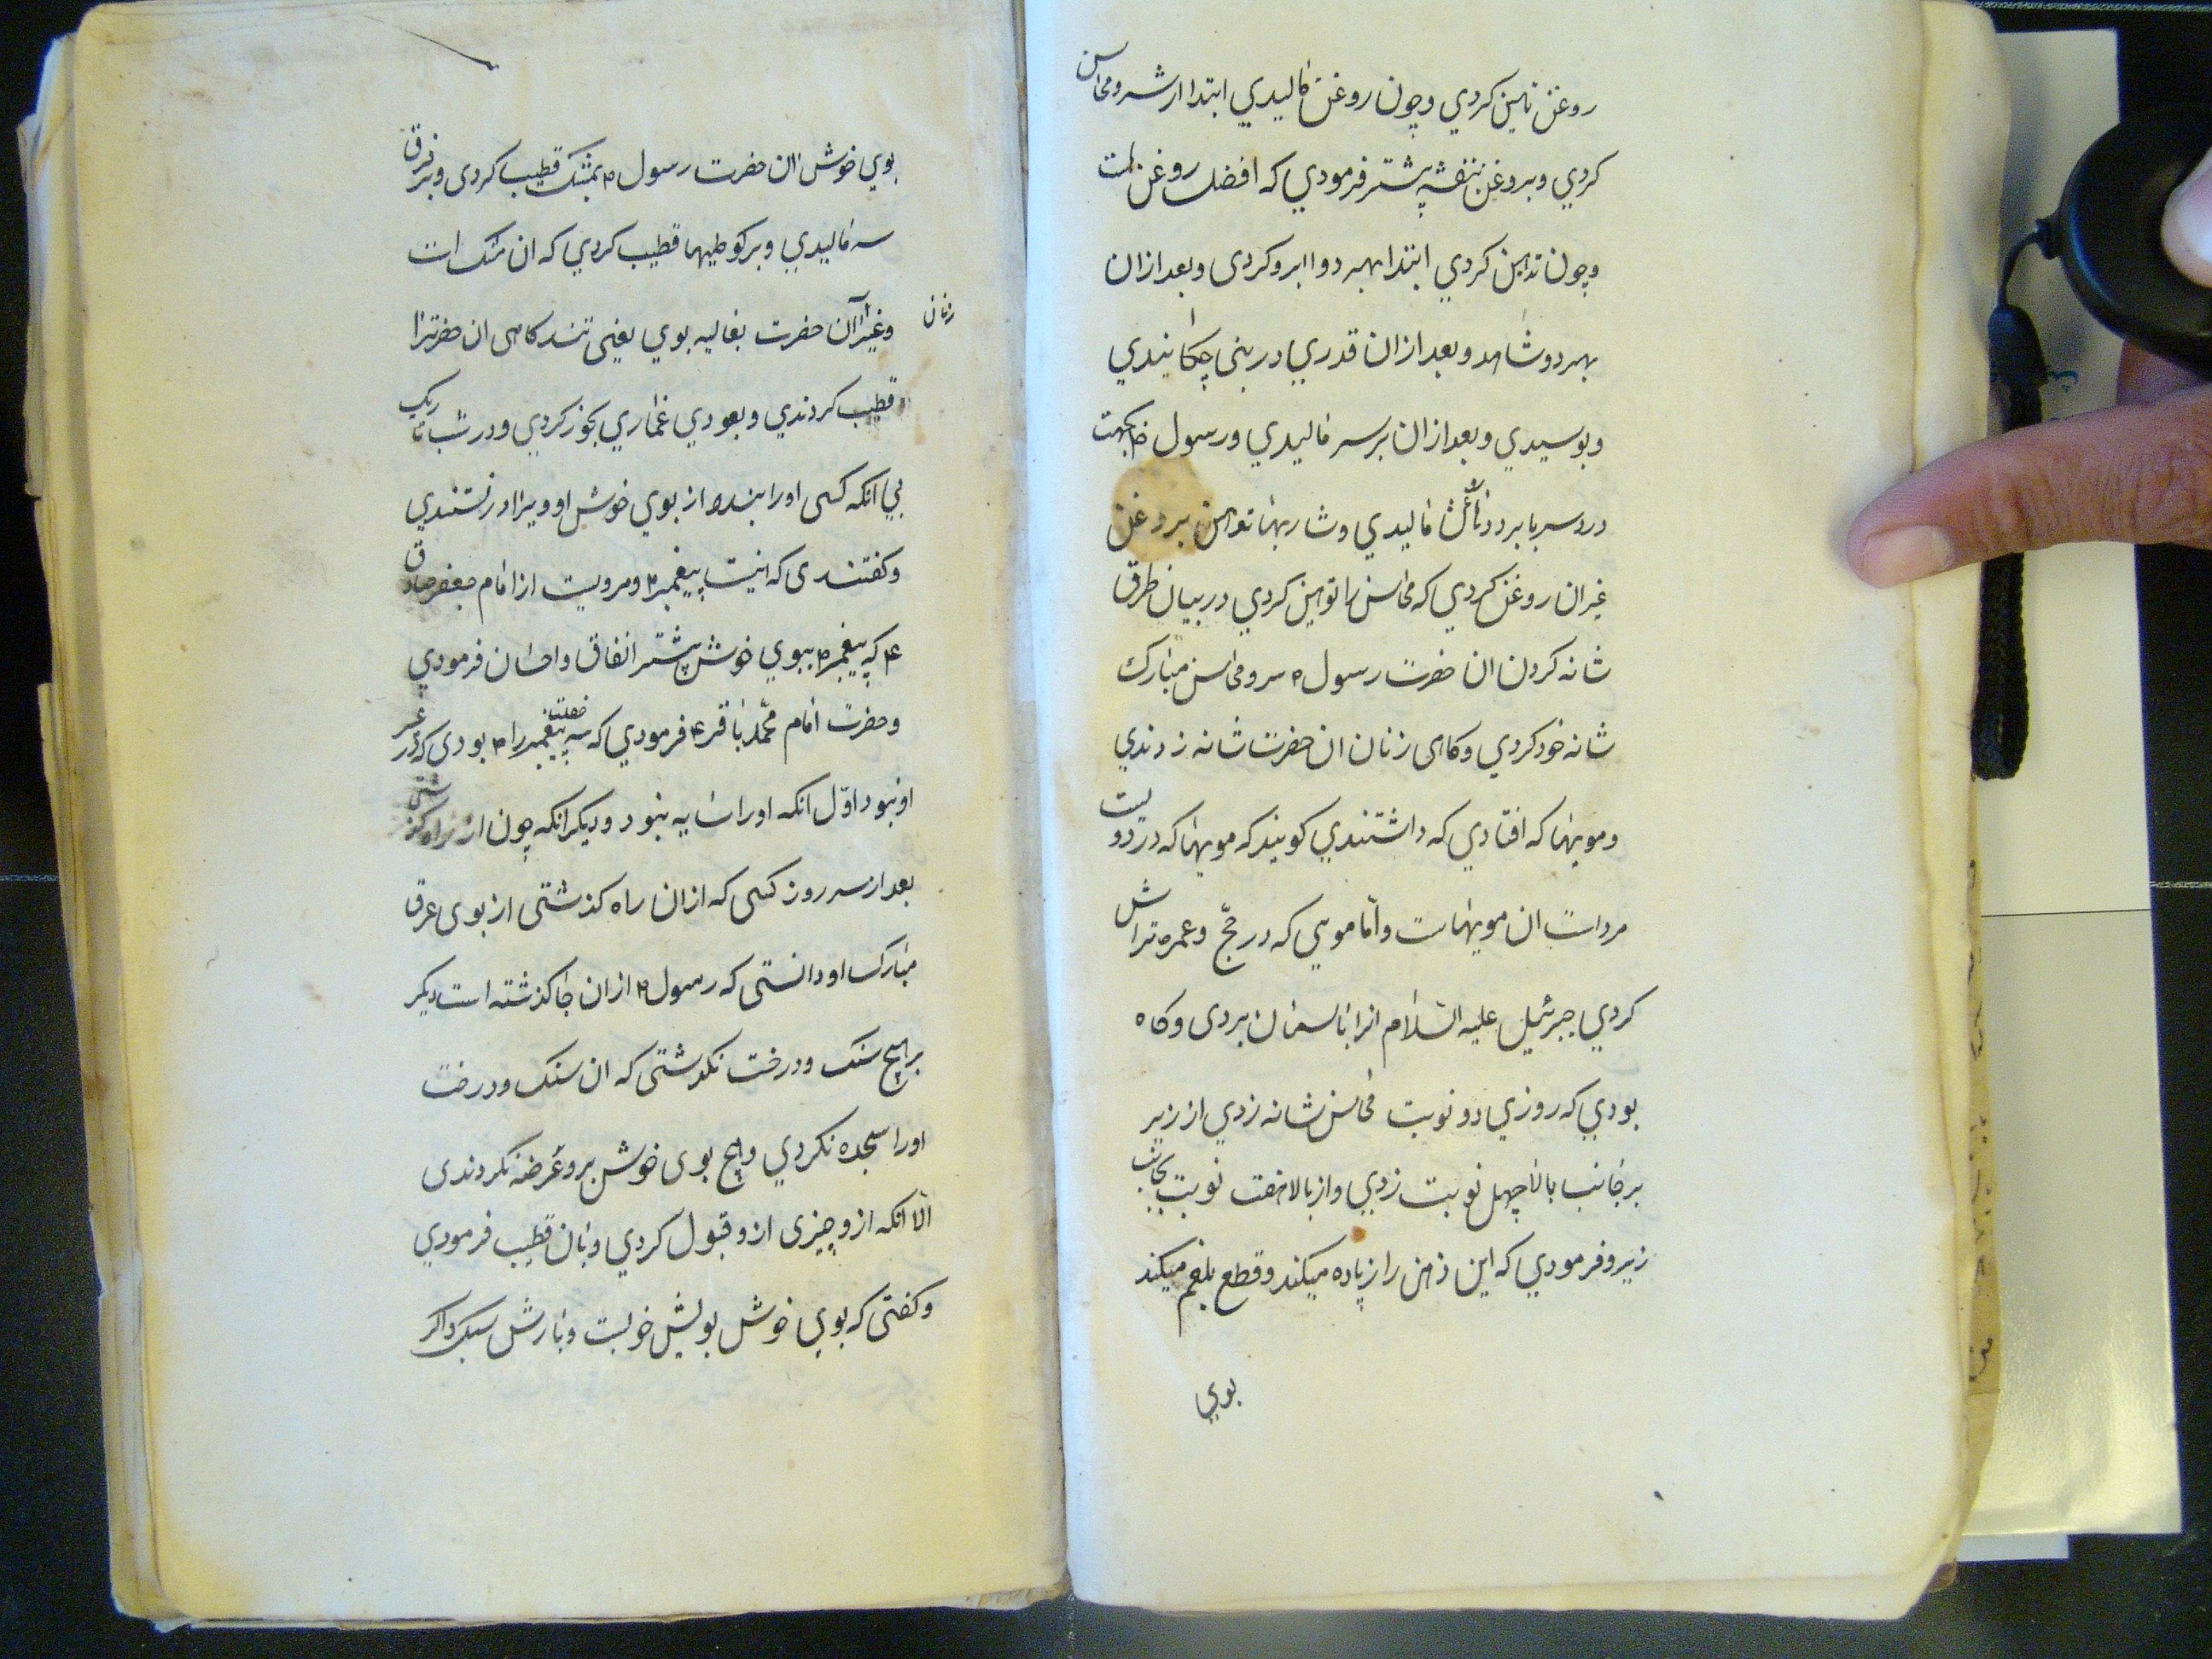 روغن تدهین کردي وچون روغن مالیدي ابتدا از سر ومحاسن
کردي وبروغن بنفشه پیشتر فرمودي که افضل روغن‌هاست
وچون تدهین کردي ابتدا بهر دو ابرو کردی وبعد ازان
بهر دو شامه وبعد ازان قدري در بینی چکانیدي
وبوسیدي وبعد ازان بر سر مالیدي ورسول م بجهت
درد سر مالیدي وشاربها بروغن
غیر ان روغن کردي که محاسن را تدهین کردي در بیان طرق
شانه کردن ان حضرت رسول م سر ومحاسن مبارک
شانه خود کردي وکاهی زنان ان حضرت شانه زدندي
ومویها که افتادي که داشتندي کویند که مویها که در دو
مردست ان مویهاست وامّا مویي که در حجّ وعمره تراش
کردي جبرئیل علیه السّلام انرا باسمان بردی وکاه
بودي که روزي دو نوبت محاسن شانه زدي از زیر
بر جانب بالا چهل نوبت زدي واز بالا هفت نوبت بجانب
زیر وفرمودي که این ذهن را زیاده میکند وقطع بلغم میکند
بوي
بوي خوش ان حضرت رسول م بمشک تطیب کردی وبر فرق
سر مالیدي وبر تطیب کردي که ان مشک است
وغیر آن حضرت بغالیه بوي یعنی کاهی ان حضرترا
زنان
تطیب کردندي وبعودي غماري بخور کردي ودر شب تاریک
بي انکه کسی اورا بیند از بوي خوش او ویرا در
وکفتندی که اینست پیغمبر م ومرویست از امام جعفر صادق
ع که پیغمبر م ببوي خوش پیشتر انفاق واحسان فرمودي
وحضرت امام محمّد باقر ع فرمودي که سه خصلت پیغمبر را م بودی که در غیر
او نبود اوّل انکه اورا سایه نبود ودیکر انکه چون از راه کذشتی
بعد از سه روز کسی که ازان راه کذشتی از بوی عرق
مبارک او دانستی که رسول م ازان جا کذشته است دیکر
بر هیچ سنک ودرخت نکذشتی که ان سنک ودرخت
اورا سجده نکردي وهیچ بوی خوش برو عرضه نکردندی
الّا انکه ازو چیزی ازو قبول کردي وبان تطیب فرمودي
وکفتی که بوي خوش بویش خوبست وبارش سبک واکر